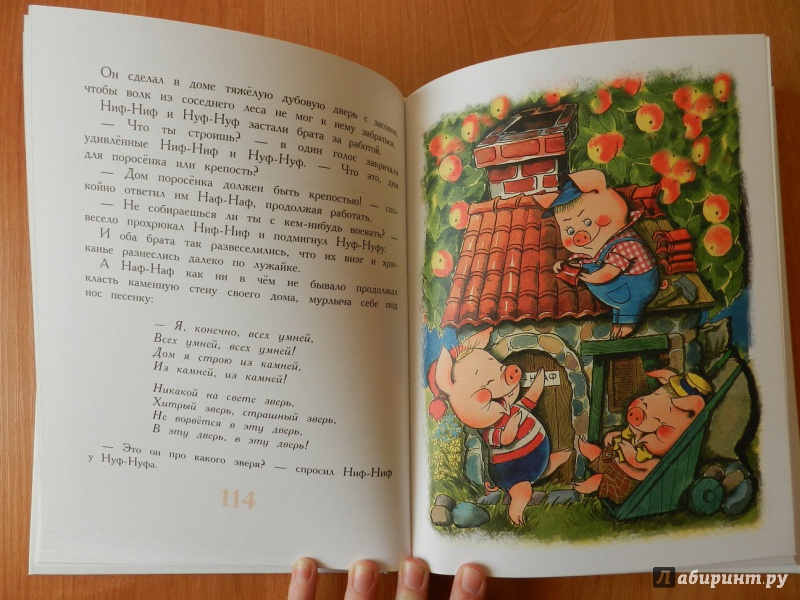 Он сделал в доме тяжёлую дубовую дверь с засовом,
чтобы волк из соседнего леса не мог к нему забраться.
Ниф-Ниф и Нуф-Нуф застали брата за работой.
— Что ты строишь? — в один голос закричали
удивлённые Ниф-Ниф и Нуф-Нуф. — Что это, дом
для поросёнка или крепость?
— Дом поросёнка должен быть крепостью! — спо-
койно ответил им Наф-Наф, продолжая работать.
— Не собираешься ли ты с кем-нибудь воевать? —
весело прохрюкал Ниф-Ниф и подмигнул Нуф-Нуфу.
И оба брата так развеселились, что их визг и хрю-
канье разнеслись далеко по лужайке.
А Наф-Наф как ни в чём не бывало продолжал
класть каменную стену своего дома, мурлыча себе под
нос песенку:
— Я, конечно, всех умней,
Всех умней, всех умней!
Дом я строю из камней,
Из камней, из камней!
Никакой на свете зверь,
Хитрый зверь, страшный зверь,
Не ворвётся в эту дверь,
В эту дверь, в эту дверь!
— Это он про какого зверя? — спросил Ниф-Ниф
у Нуф-Нуфа.
114
НАФ
Лабиринт.ру